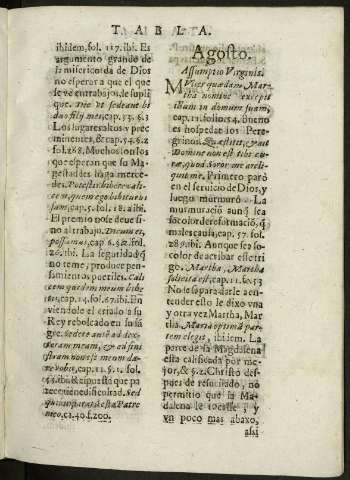 TABLA.
ibidem, fol. 117. ibi. Es
argumento grande de
la misericordia de Dios
no esperar a que el que
se ve en trabajo, le supli
que. Dic ut sedeant hi
duo filij mei, cap. 13. §. 3
Los lugares altos y pree
minentes, & cap. 54. §. 2
fol. 288. Muchos son los
que esperan que su Ma
gestad les haga merce-
des. Potestis bibere cali-
cem, quem ego bibiturus
sum, cap. 5. fol. 18. ibi.
El premio no se deue si
no al trabajo. Dicunt ei,
possumus, cap. 6. fol.
26. ibi. La seguridad
no teme, produce pen-
samientos
cem quidem meum bibe
tis, cap. 14. fol. 67. ibi. En
viendole el criado a su
Rey rebolcado en su sã
gre. Sedere autem ad dex-
teram meam, & ad sini
stram non est meum da-
re vobis, cap. 11. §. 1. fol.
53. ibi. & es justo que pa
rezca en edi cultad. Sed
quibus paratum est a Patre
meo, ca. 40. f. 200.
Agosto.
Assumptio Virginis.
Mulier quædam Mar-
tha nomine excepit
illum in domum suam,
cap. 11. folio. 54. Bueno
es hospedar los Pere-
grinos. Quæ stetit, & ait
Domine non est tibi cu-
ræ, quod soror mea reli-
quit me. Primero parò
en el seruicio de Dios, y
luego murmurò. La
murmuració aunq sea
so color de reformació, q
mal escusa, cap. 57. fol.
289. ibi. Aunque sea so-
color de acribar este tri
go. Martha, Martha
solicita est, cap. 11. f. 53
No se ha para darle a en-
tender esto le dixo vna
y otra vez Martha, Mar
tha. Maria optimã par-
tem elegit, ibidem. La
parte de la Magdalena
esta calificada por me-
jor, & §. 2. Christo des-
pues de resucitado, no
permitio que la Ma-
dalena le tocasse, y
vn poco mas abaxo,